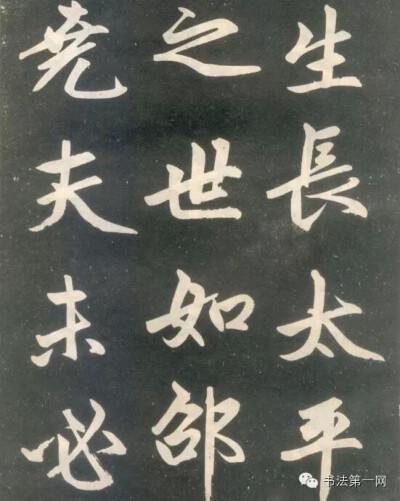 生長太平
之世如邵
尧夫未必
书法第一网